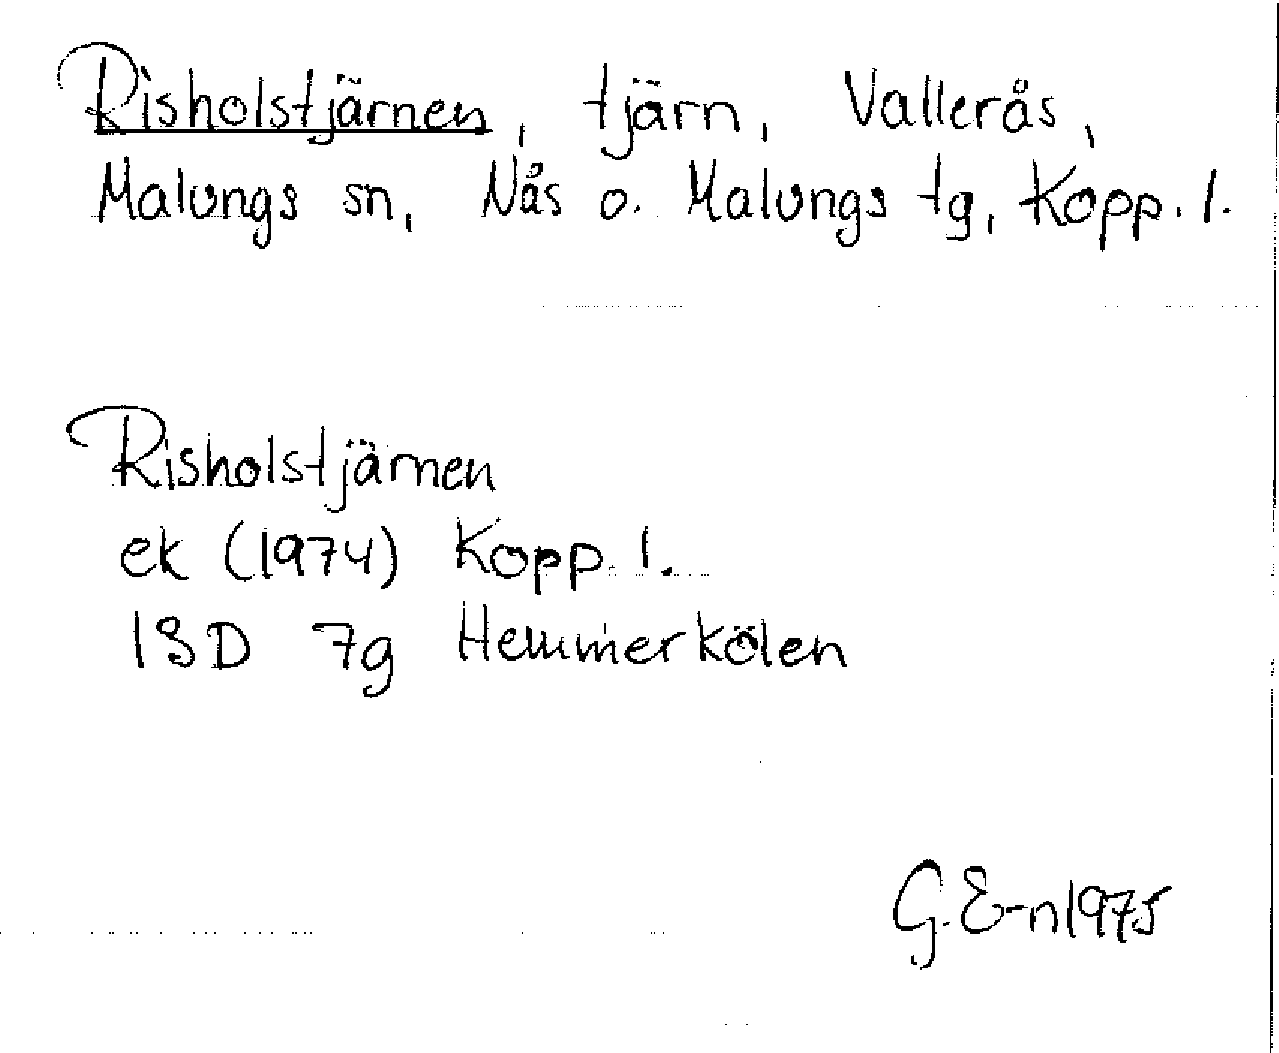 Risholstjärnen, tjärn, Vallerås,
Malungs sn, Nås o. Malungs tg, Kopp. l.
Risholstjärnen
ek (1974) Kopp. l.
13D 7g Hemmerkölen
G. E-n 1975